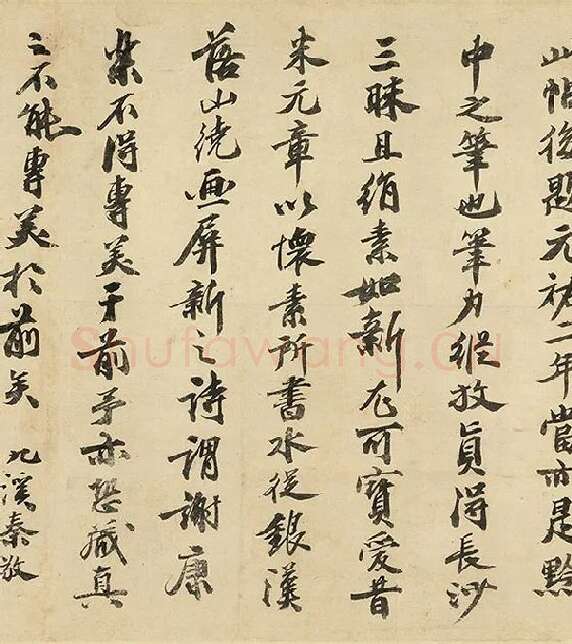 此帖後題元祐二年當亦是黔
中之筆也筆力縱放真得長沙
三昧且絹素如新尤可寶愛昔
米元章以懷素所書水從銀漢
落山繞画屏新之詩謂謝康
樂不得專美于前予亦恐藏真
之不能專美於前矣 北溪秦敬
Shufawang.Cn